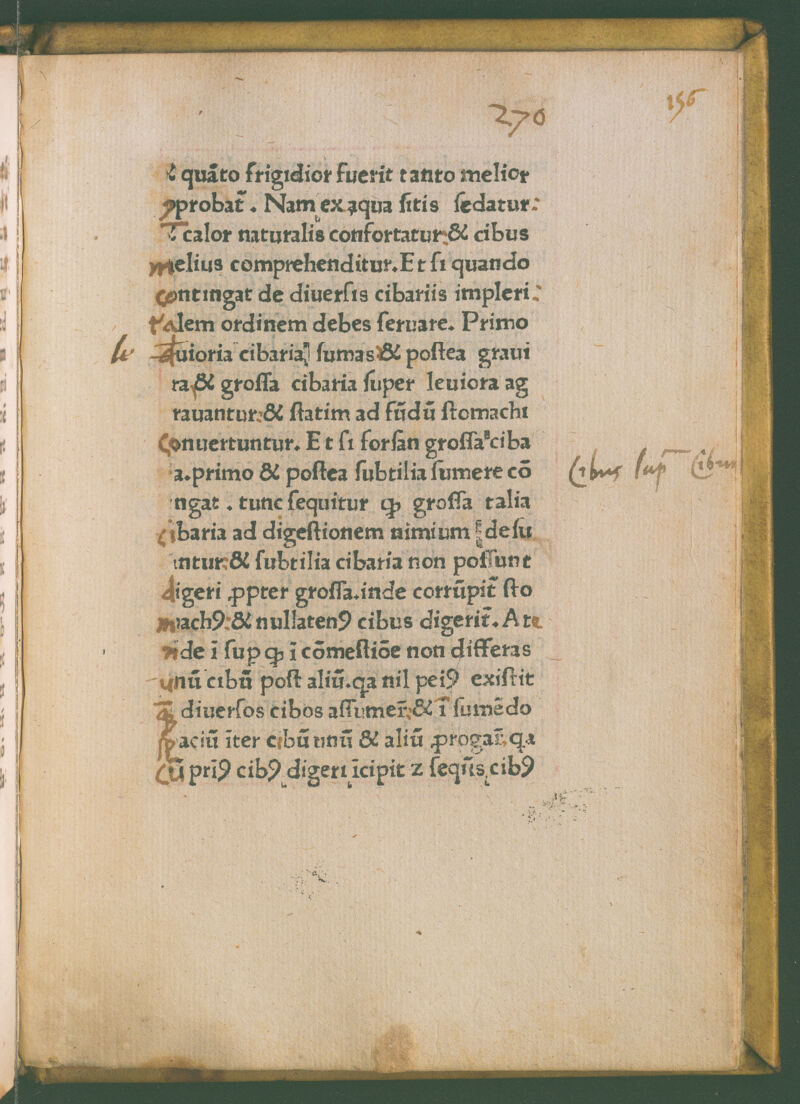 270
156
⁊ quāto frigidior fuerit tanto melior
ꝓprobat̄ . Nam ex aqua ſitis ſedatur:
⁊ calor naturalis confortatur:& cibus
melius comprehenditur. Et ſi quando
contingat de diuerſis cibariis impleri:
talem ordinem debes ſeruare. Primo
le uioria cibaria ſumas:& poſtea graui
ra,& groſſa cibaria ſuper leuiora ag
rauantur:& ſtatim ad fūdū ſtomachi
conuertuntur. Et ſi forſan groſſa ciba
a.primo & poſtea ſubtilia ſumere cō
ngat . tunc ſequitur ꝙ groſſa talia
cibaria ad digeſtionem nimium deſu
intur:& ſubtilia cibaria non poſſunt
digeri ꝓpter groſſa.inde corrūpit̄ ſto
mach9:& nullaten9 cibus digerit̄. At
vide ī ſup ꝙ ī cōmeſtiōe non differas
unū cibū poſt aliū.qa nil pei9 exiſtit
ꝗ diuerſos cibos aſſumer̄:& ī ſumēdo
ſpaciū īter cibū unū & aliū ꝓrogar̄,qa
cū pri9 cib9 digeri īcipit z ſeqn̄s cib9
Cibus ſup Cibum